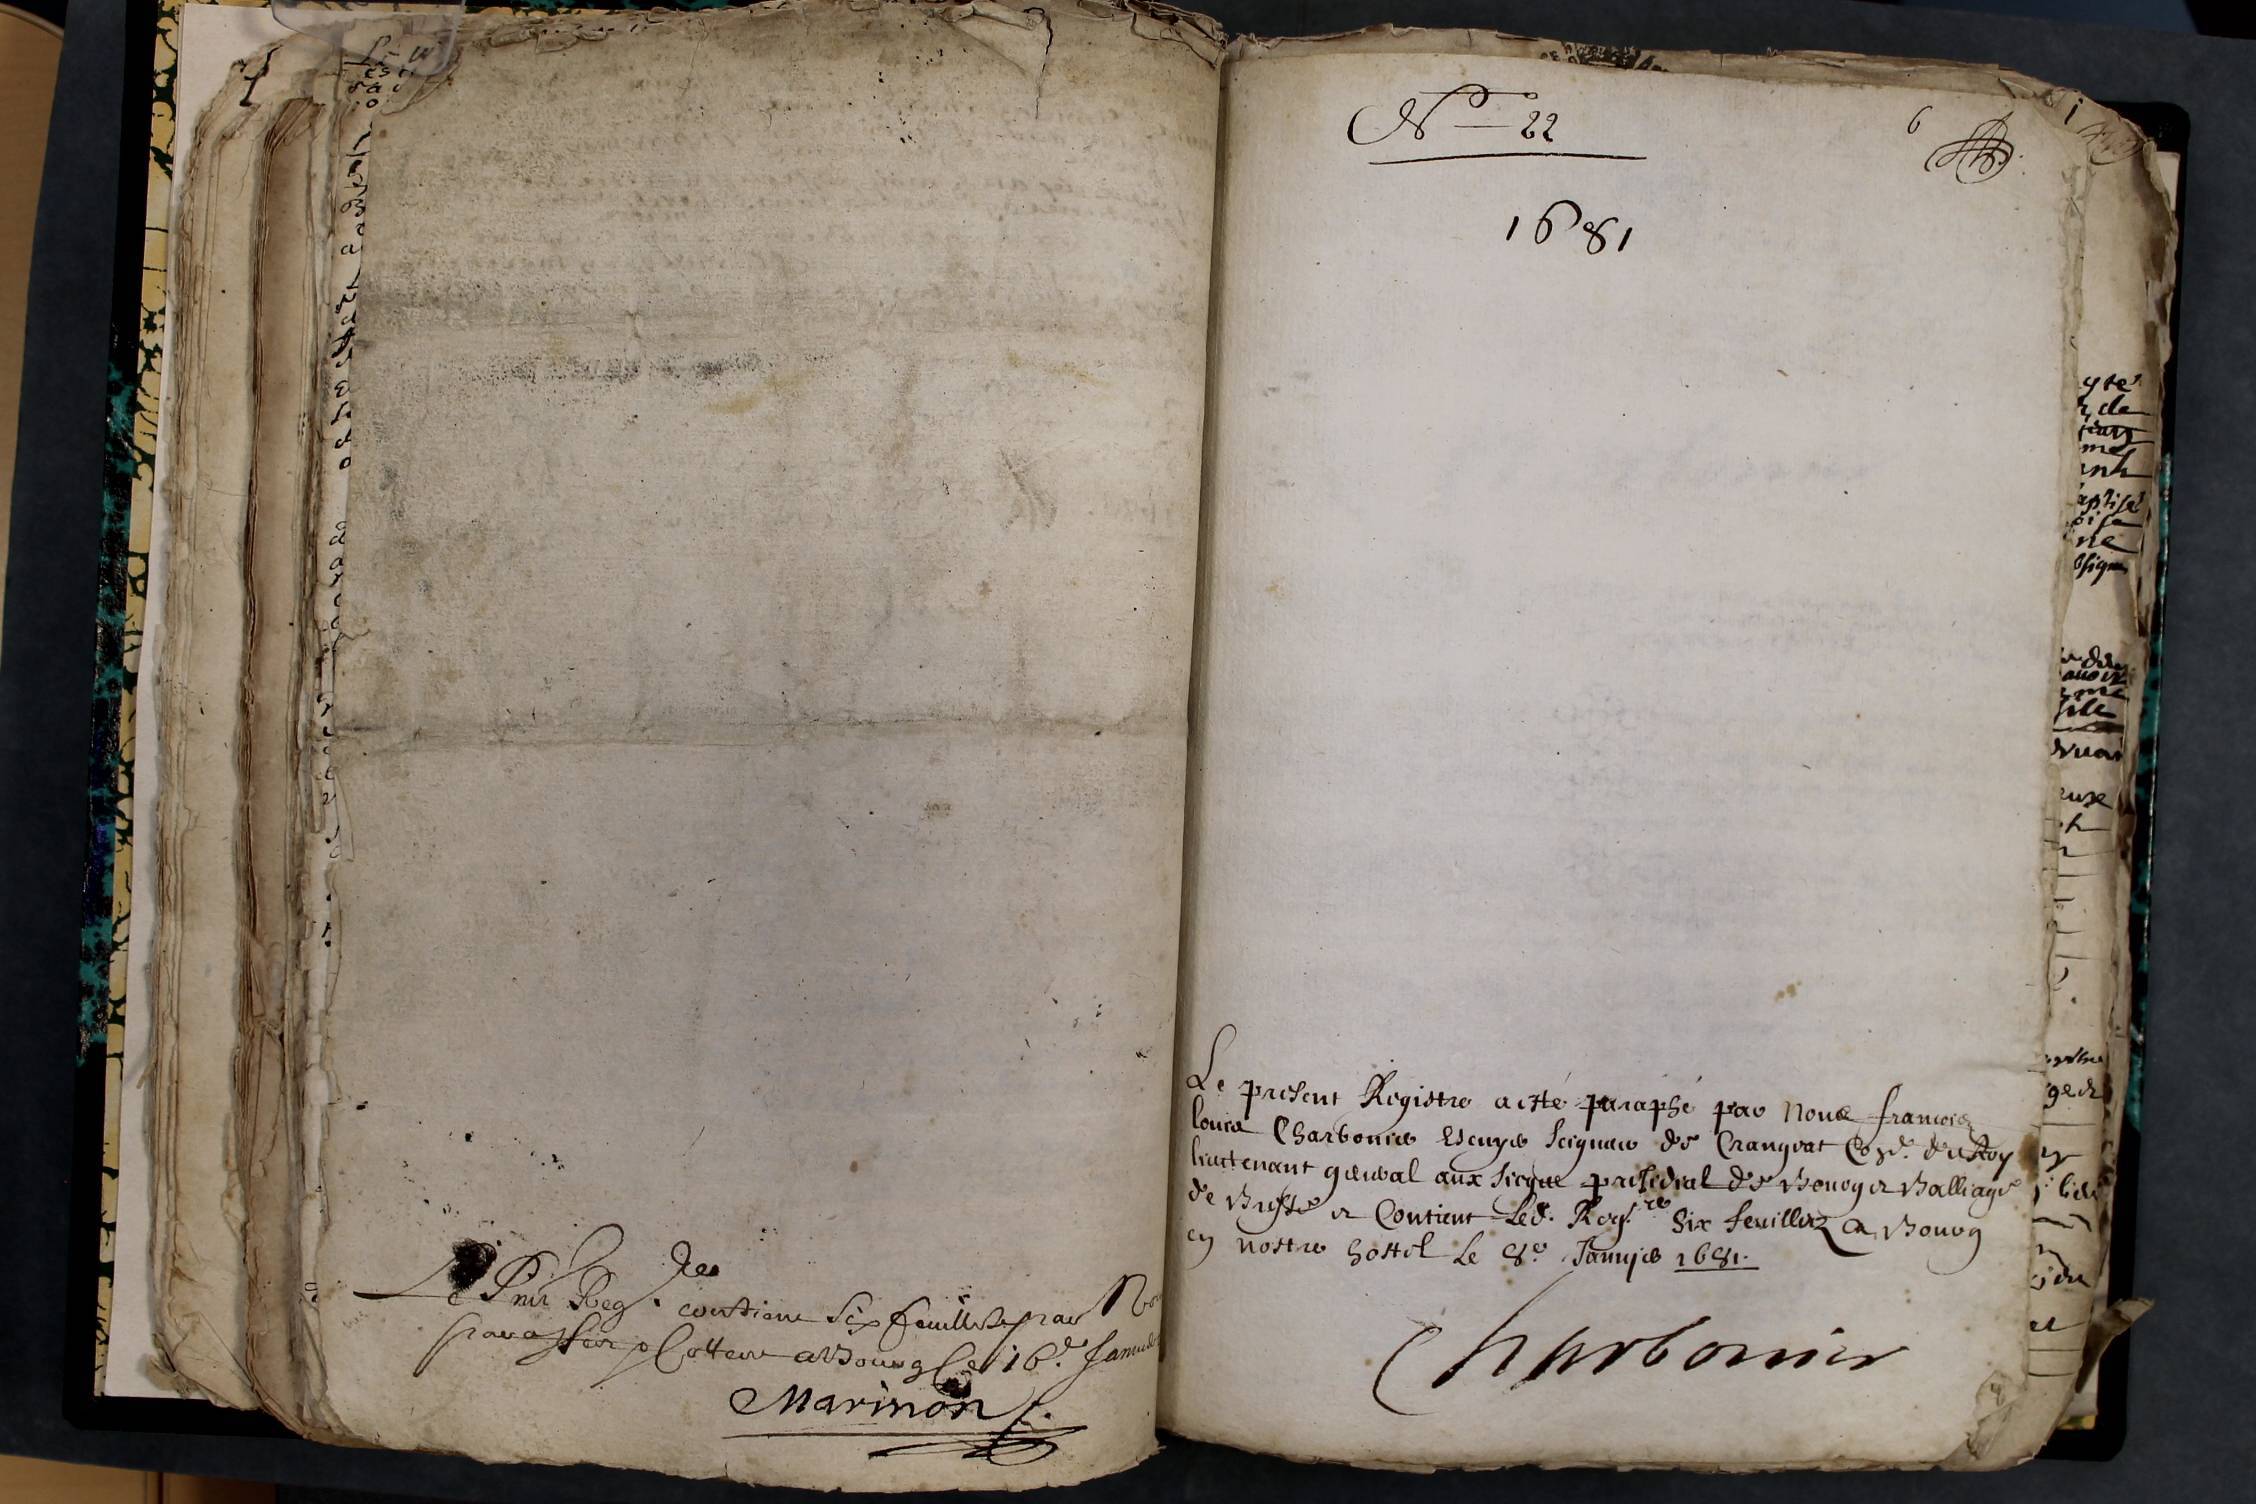 Le Pnt Reg.de contient Six feuillets par Nou
parapher & Cotter a Bourg Le 16.e Janvier
Marinon
N° 22
6
1681
Le present Registre a esté paraphé par Nous francois
louis Charbonier Escuyer Seigneur de Crangeat Con.er du Roy
lieutenant general aux sieges presidial de Bourg et Balliage
de Bresse et Contient Led. Reg.re Six feuilletz a Bourg
en nostre hostel Le 8.e Janvier 1681.
Charbonier